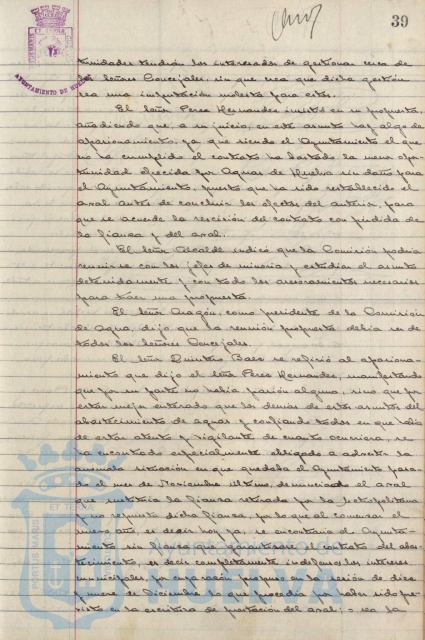 39
AYUNTAMIENTO DE HUELVA
tunidades tendrán los interesados de gestionar cerca de
los Señores Concejales, sin que crea que dicha gestión
sea una imputación molesta para éstos.
El Señor Perez Hernandez insistió en su propuesta,
añadiendo que, a su juicio, en este asunto hay algo de
apasionamiento, ya que siendo el Ayuntamiento el que
no ha cumplido el contrato ha bastado la menor opor-
tunidad ofrecida por Aguas de Huelva sin daño para
el Ayuntamiento, puesto que ha sido restablecido el
aval antes de concluir los efectos del anterior, para
que se acuerde la rescisión del contrato con pérdida de
la fianza y del aval.
El Señor Alcalde indicó que la Comisión podría
reunirse con los jefes de minoría y estudiar el asunto
detenidamente y con todos los asesoramientos necesarios
para traer una propuesta.
El Señor Aragón, como presidente de la Comisión
de Aguas, dijo que la reunión propuesta debía ser de
todos los Señores Concejales.
El Señor Quintero Baez se refirió al apasiona-
miento que dijo el Señor Perez Hernandez, manifestando
que por su parte no había pasión alguna, sino que por
estar mejor enterado que los demás de estos asuntos del
abastecimiento de aguas y confiando todos en que había
de estar atento y vigilante de cuanto ocurriera, se
ha encontrado especialmente obligado a advertir la
anómala situación en que quedaba el Ayuntamiento pasa-
do el mes de Noviembre último, denunciado el aval
que sustituía la fianza retirada por la
y no repuesto dicha fianza, por lo que al comenzar el
nuevo año, es decir hoy ya, se encontraría el Ayunta-
miento sin fianza que garantizase el contrato del abas-
tecimiento, es decir completamente indefensos los intereses
municipales, por cuya razón propuso en la sesión de diez
y nueve de Diciembre lo que procedía por haber sido pre-
visto en la escritura de prestación del aval; o sea la
PORTUS MARIS
ET TERRAE
Ayuntamiento de
HUELVA